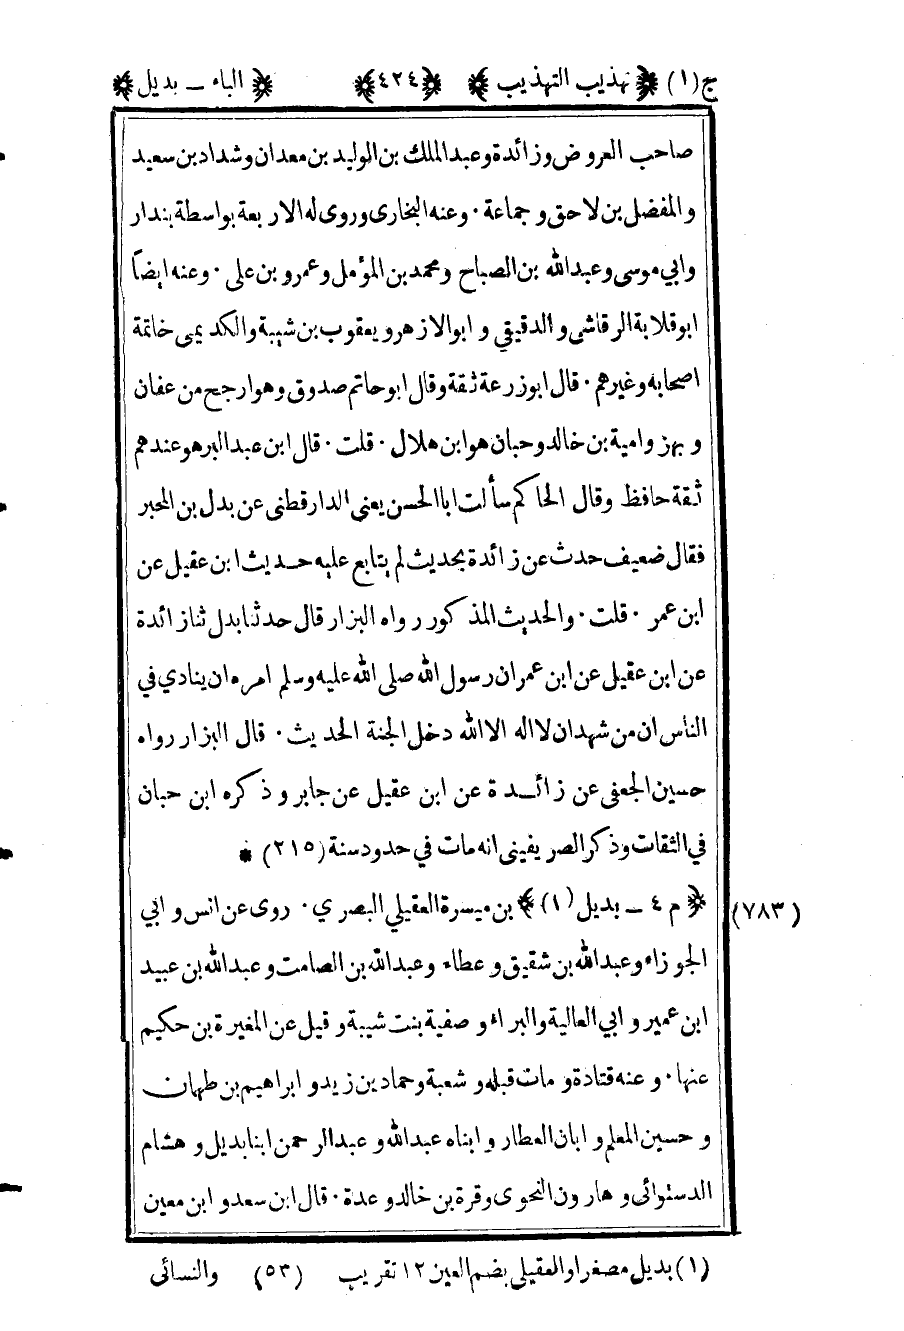 ج(١) ﴿ تهذيب التهذيب ﴾ ﴿٤٢٤﴾ ﴿ الباء ـ بديل ﴾
صاحب العروض وزائدة وعبد الملك بن الوليد بن معدان وشداد بن سعيد
والمفضل بن لاحق وجماعة · وعنه البخارى وروى له الاربعة بواسطة بندار
وابي موسى وعبد الله بن الصباح ومحمد بن المؤمل وعمرو بن على · وعنه ايضاً
ابو قلابة الرقاشى والدقيقي وابو الازهر ويعقوب بن شيبة والكديمى خاتمة
اصحابه وغيرهم · قال ابو زرعة ثقة وقال ابو حاتم صدوق وهو ارجح من عفان
وبهز وامية بن خالد وحبان هو ابن هلال · قلت · قال ابن عبد البر هو عندهم
ثقة حافظ وقال الحاكم سألت ابا الحسن يعنى الدارقطنى عن بدل بن المحبر
فقال ضعيف حدث عن زائدة بحديث لم يتابع عليه حديث ابن عقيل عن
ابن عمر · قلت · والحديث المذكور رواه البزار قال حدثنا بدل ثنا زائدة
عن ابن عقيل عن ابن عمر ان رسول الله صلى الله عليه وسلم امره ان ينادي في
الناس ان من شهد ان لا اله الا الله دخل الجنة الحديث · قال البزار رواه
حسين الجعفى عن زائدة عن ابن عقيل عن جابر وذكره ابن حبان
في الثقات وذكر الصريفينى انه مات في حدود سنة (٢١٥) *
(٧٨٣) ﴿ م ٤ ـ بديل (١) ﴾ بن ميسرة العقيلي البصري · روى عن انس وابي
الجوزاء وعبد الله بن شقيق وعطاء وعبد الله بن الصامت وعبد الله بن عبيد
ابن عمير وابي العالية والبراء وصفية بنت شيبة وقيل عن المغيرة بن حكيم
عنها · وعنه قتادة ومات قبله وشعبة وحماد بن زيد وابراهيم بن طهمان
وحسين المعلم وابان العطار وابناه عبد الله وعبد الرحمن ابنا بديل وهشام
الدستوائى وهارون النحوى وقرة بن خالد وعدة · قال ابن سعد وابن معين
(١) بديل مصغرا والعقيلي بضم العين ١٢ تقريب (٥٣) والنسائى